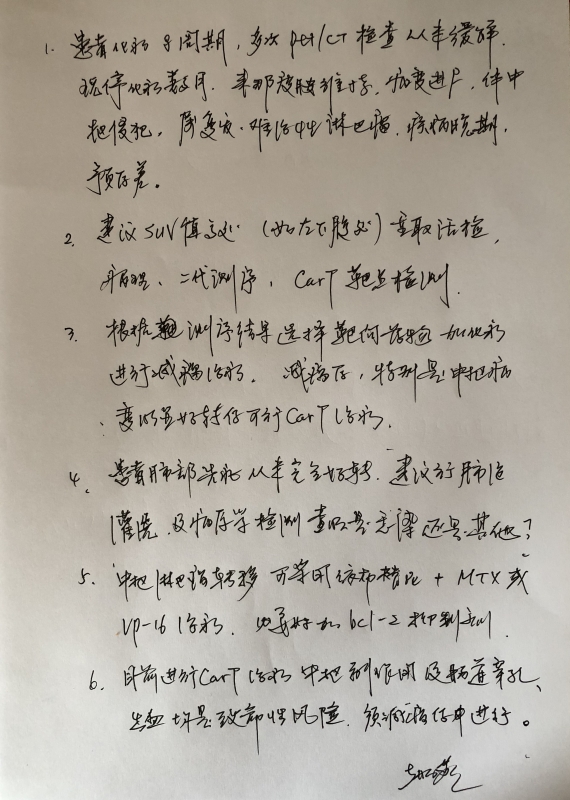 1. 患者化疗8周期,多次pet/CT检查从未缓解.
现停化疗数月.来那度胺维持.病变进展,体中
枢侵犯,属复发.难治性淋巴瘤.疾病晚期,
预后差。
2. 建议SUV值高处(如左下腹处)重取活检,
病理、二代测序, CarT靶点检测.
3. 根据测序结果选择靶向药物加化疗
进行减瘤治疗. 减瘤后,特别是中枢病
变明显好转后可行CarT治疗.
4. 患者肺部从未完全好转.建议行肺泡
灌洗.及病原学检测查明是感染还是其他?
5. 中枢淋巴瘤转移可采用依布替尼+MTX或
Vp-16治疗. bcl-2抑制剂.
6. 目前进行CarT治疗中枢副作用及肠道穿孔、
出血均是致命性风险.须减瘤后中进行。